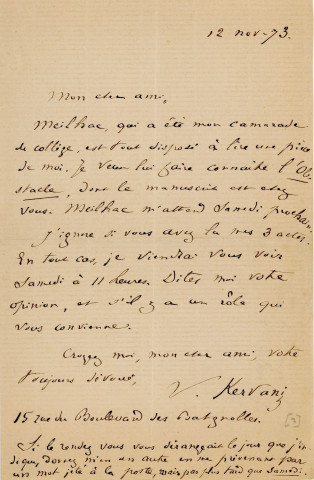 12 nov-73.
Mon cher ami,
Meilhac, qui a été mon camarade
de collège, est tout disposé à lire une pièce
de moi. Je veux lui faire connaître l'Ob-
stacle, dont le manuscrit est chez
vous. Meilhac m'attend samedi prochain.
J'ignore si vous avez lu mes 3 actes.
En tout cas, je viendrai vous voir
samedi à 11 heures. Dites moi votre
opinion, et s'il y a un rôle qui
vous convienne.
Croyez moi, mon cher ami, votre
toujours dévoué,
V. Kervani
15 rue du Boulevard des Batignolles.
Si le rendez vous vous dérangeait le jour que j'in-
dique, donnez m'en un autre en me prévenant par
un mot jeté à la poste, mais pas plus tard que samedi.